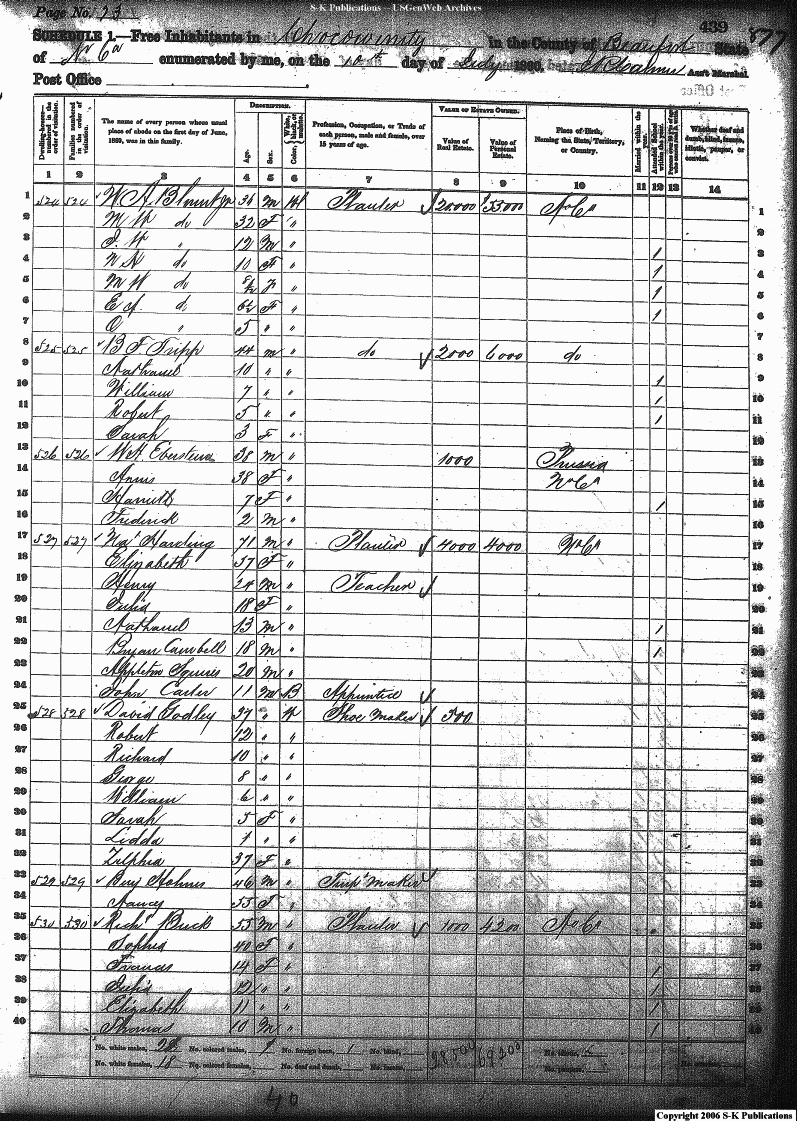 S-K Publications -- USGenWeb Archives
Page No. 23
439
877
SCHEDULE 1.—Free Inhabitants in Chocowinity in the County of Beaufort State
of No Ca enumerated by me, on the 10th day of July 1860. Ass't Marshal.
Post Office
Dwelling-houses—numbered in the order of visitation.
Families numbered in the order of visitation.
The name of every person whose usual place of abode on the first day of June, 1860, was in this family.
DESCRIPTION.
Age.
Sex.
Color, White, black, or mulatto.
Profession, Occupation, or Trade of each person, male and female, over 15 years of age.
VALUE OF ESTATE OWNED.
Value of Real Estate.
Value of Personal Estate.
Place of Birth, Naming the State, Territory, or Country.
Married within the year.
Attended School within the year.
Whether deaf and dumb, blind, insane, idiotic, pauper, or convict.
1 2 3 4 5 6 7 8 9 10 11 12 13 14
1 524 524 W A Blount Jr 36 M W Planter $20,000 $53,000 No Ca 1
2 M W do 32 F " 2
3 J. W " 12 M " 1 3
4 N A do 10 F " 1 4
5 M W do F " 1 5
6 E do 6 F " 1 6
7 O " 5 " " 7
8 525 525 B F Tripp 44 M " do 2000 6000 do 8
9 Nathaniel 10 " " 1 9
10 William 7 " " 1 10
11 Robert 5 " " 1 11
12 Sarah 3 F " 12
13 526 526 W H 38 M " 1000 Prussia 13
14 Annis 38 F " No Ca 14
15 Harriett 7 F " 1 15
16 Frederick 2 M " 16
17 527 527 Nat Harding 71 M " Planter 4000 4000 No Ca 17
18 Elizabeth 57 F " 18
19 Henry 24 M " Teacher 19
20 Julia 18 F " 20
21 Nathaniel 13 M " 1 21
22 Bryan Cambell 18 M " 1 22
23 Appleton Squires 20 M " 23
24 John Carter 11 M B Apprintice 24
25 528 528 David Godley 37 " W Shoe Maker 500 25
26 Robert 12 " " 26
27 Richard 10 " " 27
28 George 8 " " 28
29 William 6 " " 29
30 Sarah 5 F " 30
31 Lidda 1 " " 31
32 Zilphia 37 F " 32
33 529 529 Benj Holmes 46 M " Turpt Maker 33
34 Nancy 55 F " 34
35 530 530 Richd Buck 55 M " Planter 1000 4200 No Ca 35
36 Sophia 40 F " 36
37 Frances 14 F " 1 37
38 Julia 12 " " 1 38
39 Elizabeth 11 " " 1 39
40 Thomas 10 M " 1 40
No. white males, No. colored males, 1 No. foreign born, 1 No. blind, 28500 67200 No. idiotic,
No. white females, 18 No. colored females, No. deaf and dumb, No. insane, No. paupers,
40
Copyright 2006 S-K Publications